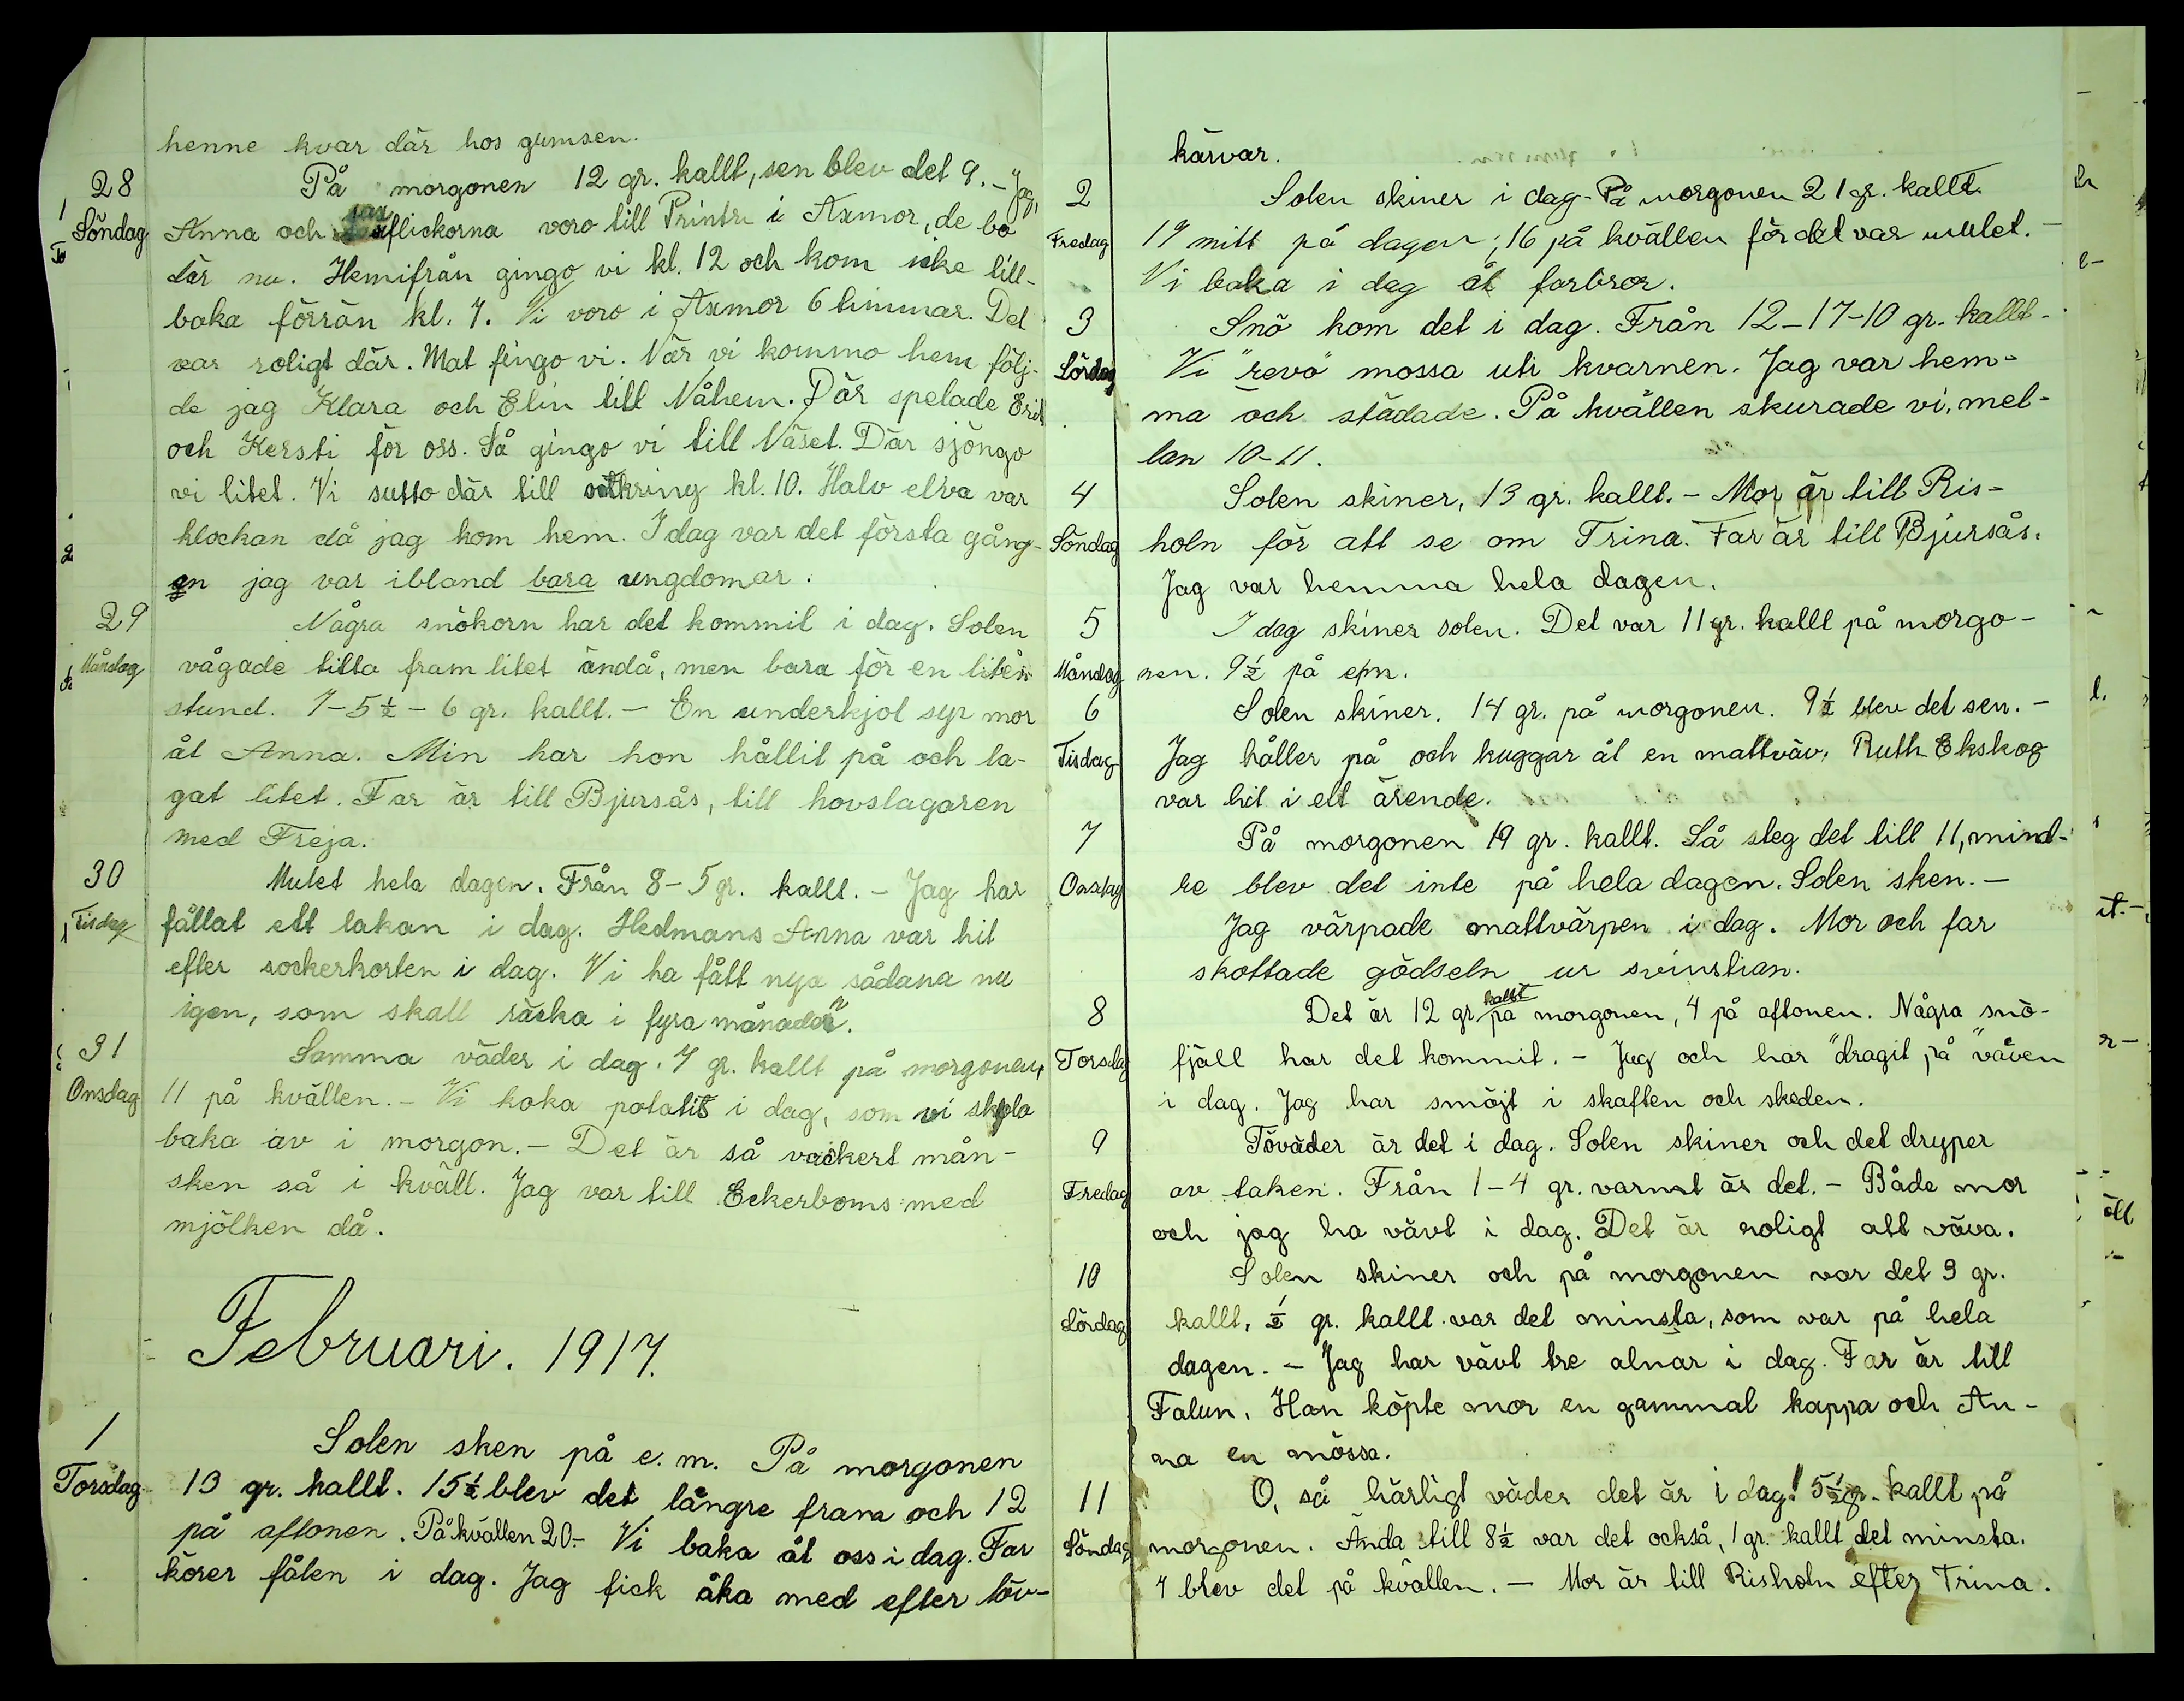 henne kvar där hos gumsen.
28 På morgonen 12 gr. kallt, sen blev det 9. – Jag,
Söndag Anna och flickorna voro till Printzn i Axmor, de bo
där nu. Hemifrån gingo vi kl. 12 och kom icke till-
baka förrän kl. 7. Vi voro i Axmor 6 timmar. Det
var roligt där. Mat fingo vi. När vi kommo hem följ-
de jag Klara och Elin till Nåhem. Där spelade Erik
och Kersti för oss. Så gingo vi till Näset. Där sjöngo
vi litet. Vi sutto där till omkring kl. 10. Halv elva var
klockan då jag kom hem. I dag var det första gång-
en jag var ibland bara ungdomar.
29 Några snökorn har det kommit i dag. Solen
Måndag vågade titta fram litet ändå, men bara för en liten
stund. 7–5½–6 gr. kallt. – En underkjol syr mor
åt Anna. Min har hon hållit på och la-
gat litet. Far är till Bjursås, till hovslagaren
med Freja.
30 Mulet hela dagen. Från 8–5 gr. kallt. – Jag har
Tisdag fållat ett lakan i dag. Hedmans Anna var hit
efter sockerkorten i dag. Vi ha fått nya sådana nu
igen, som skall räcka i fyra månader.
31 Samma väder i dag. 7 gr. kallt på morgonen,
Onsdag 11 på kvällen. – Vi koka potatis i dag, som vi skola
baka av i morgon. – Det är så vackert mån-
sken så i kväll. Jag var till Eckerboms med
mjölken då.
Februari. 1917.
1 Solen sken på e. m. På morgonen
Torsdag 13 gr. kallt. 15½ blev det längre fram och 12
på aftonen. På kvällen 20.– Vi baka åt oss i dag. Far
körer fålen i dag. Jag fick åka med efter löv-
kärvar.
2 Solen skiner i dag. På morgonen 21 gr. kallt.
Fredag 19 mitt på dagen, 16 på kvällen för det var mulet. –
Vi baka i dag åt farbror.
3 Snö kom det i dag. Från 12–17–10 gr. kallt.
Lördag Vi "revo" mossa uti kvarnen. Jag var hem-
ma och städade. På kvällen skurade vi, mel-
lan 10–11.
4 Solen skiner, 13 gr. kallt. – Mor är till Ris-
Söndag holn för att se om Trina. Far är till Bjursås.
Jag var hemma hela dagen.
5 I dag skiner solen. Det var 11 gr. kallt på morgo-
Måndag nen. 9½ på efm.
6 Solen skiner. 14 gr. på morgonen. 9½ blev det sen. –
Tisdag Jag håller på och huggar åt en mattväv. Ruth Ekskog
var hit i ett ärende.
7 På morgonen 19 gr. kallt. Så steg det till 11, mind-
Onsdag re blev det inte på hela dagen. Solen sken. –
Jag värpade mattvärpen i dag. Mor och far
skottade gödseln ur svinstian.
8 Det är 12 gr kallt på morgonen, 4 på aftonen. Några snö-
Torsdag fjäll har det kommit. – Jag och har "dragit på" väven
i dag. Jag har smöjt i skaften och skeden.
9 Töväder är det i dag. Solen skiner och det dryper
Fredag av taken. Från 1–4 gr. varmt är det. – Både mor
och jag ha vävt i dag. Det är roligt att väva.
10 Solen skiner och på morgonen var det 9 gr.
Lördag kallt, ½ gr. kallt var det minsta, som var på hela
dagen. – Jag har vävt tre alnar i dag. Far är till
Falun. Han köpte mor en gammal kappa och An-
na en mössa.
11 O, så härligt väder det är i dag! 5½ gr. kallt på
Söndag morgonen. Ända till 8½ var det också, 1 gr. kallt det minsta.
7 blev det på kvällen. – Mor är till Risholn efter Trina.